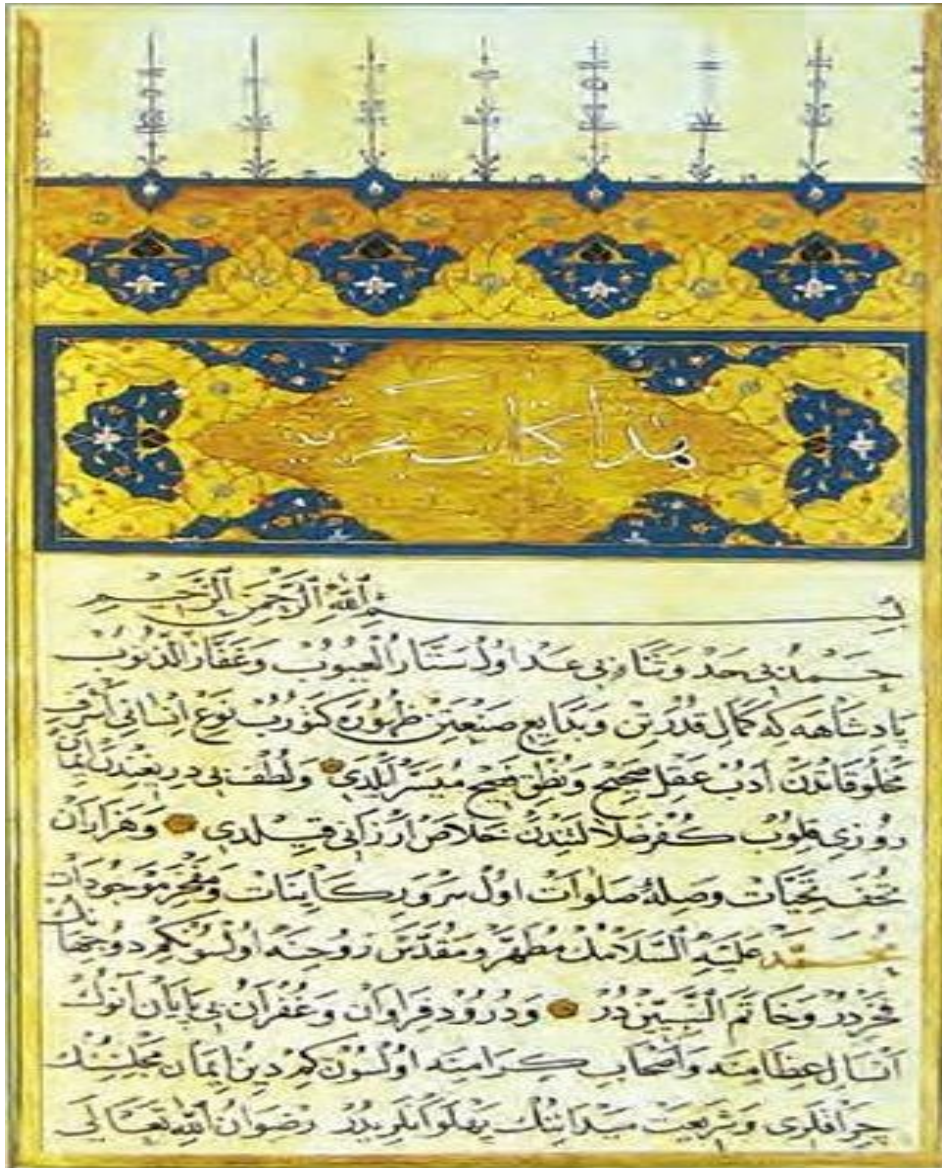 هذا كتاب بحريه
بسم الله الرحمن الرحيم
حمد بی حد و ثناء بی عد اول ستار العيوب و غفار الذنوب
پادشاهه که کمال قدرتن و بدایع صنعتن ظهوره کتورب نوع انسانی اشرف
مخلوقاتدن ادب عقل صحیح و نطق فصیح میسر ایلدی ولطف بی دریغندن ایمان
روزی قلوب کفر ضلالتندن خلاص ارزانی قیلدی وهزاران
تحف تحیات وصلهٔ صلوات اول سرور کاینات ومفخر موجودات
محمد علیه السلامك مطهر ومقدس روحنه اولسونکم دو جهانك
فخریدر وخاتم النبییندر ودرود فراوان وغفران بی پایان آنوك
آنسال عظامنه واصحاب کرامنه اولسون کم دین ایمان مجلسنك
چراقلری وشریعت میداننك پهلوانلریدر رضوان الله تعالی